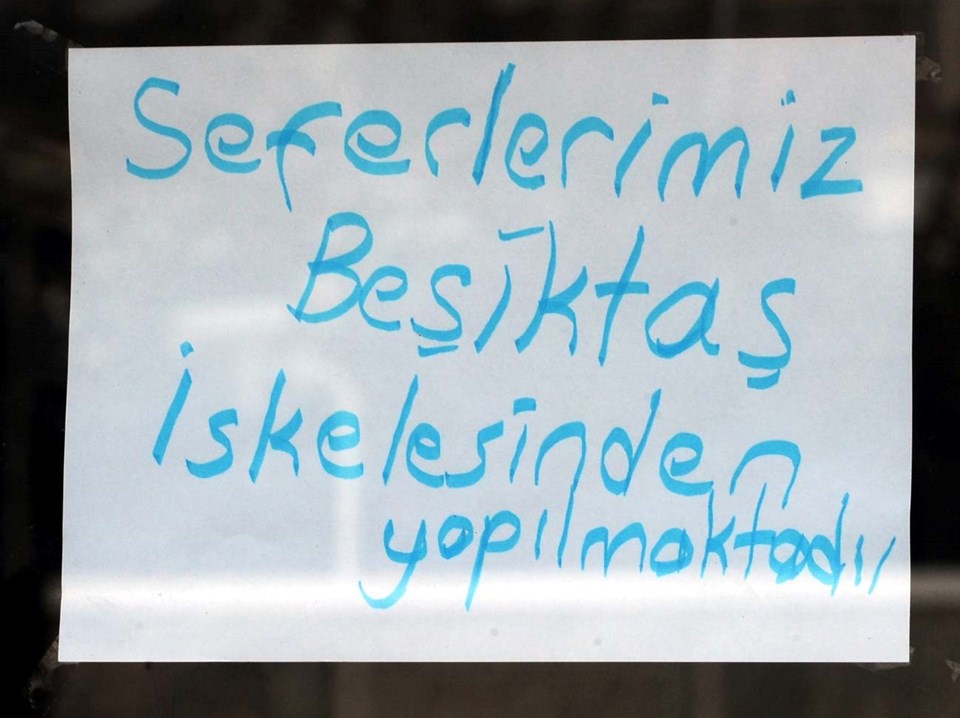 Seferlerimiz
Beşiktaş
İskelesinden
yapılmaktadır